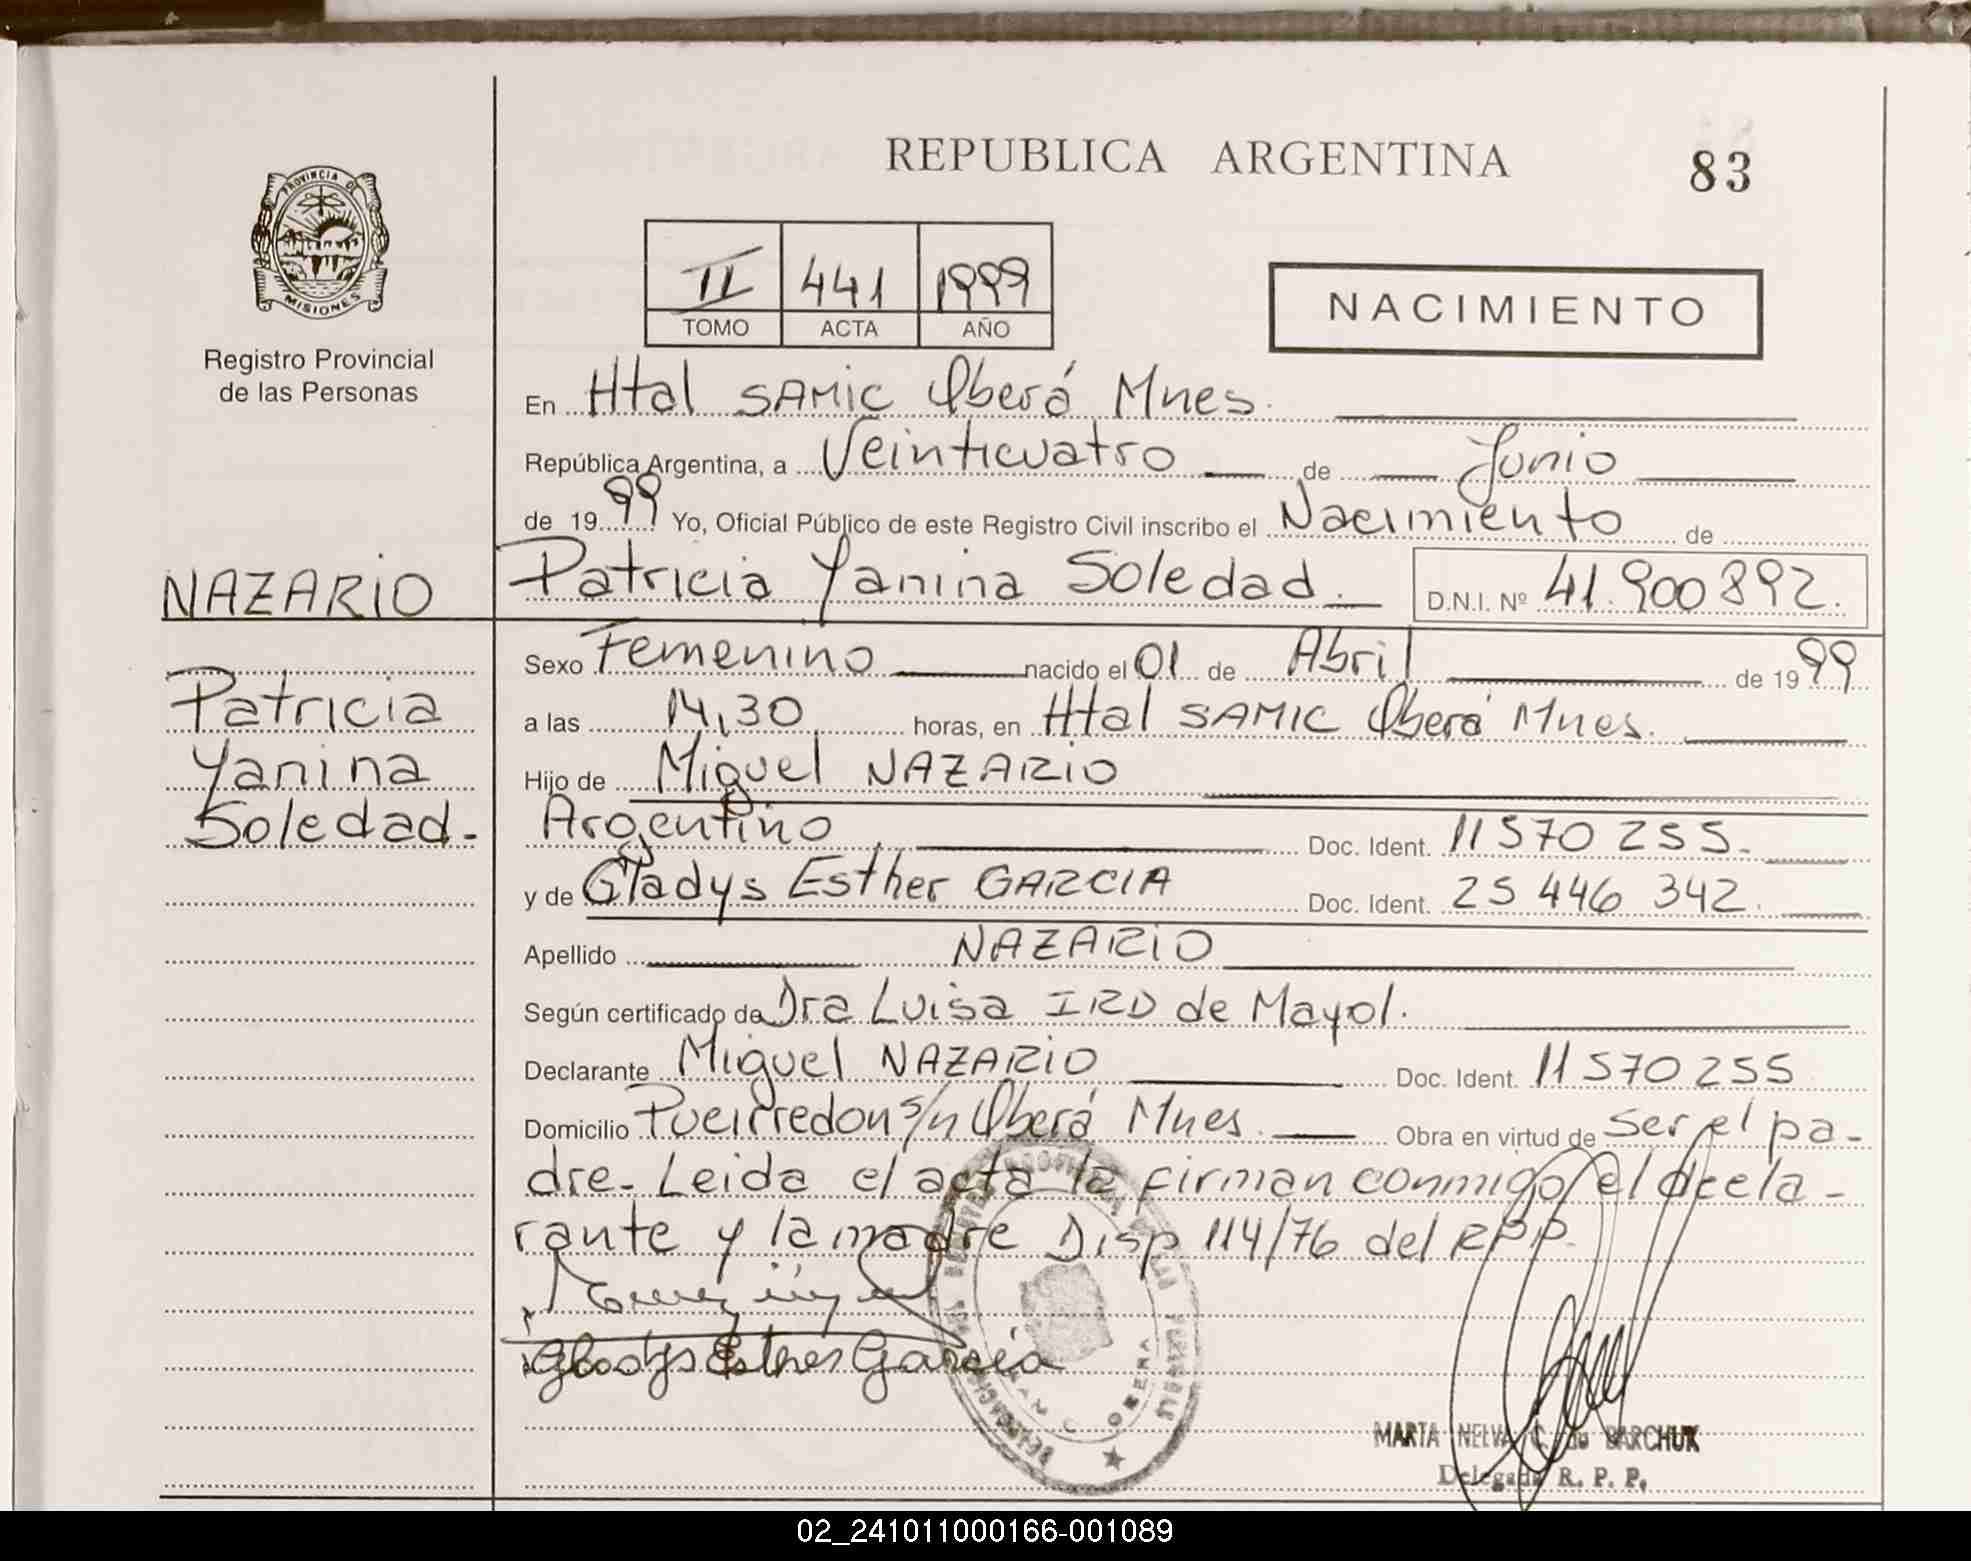 REPUBLICA ARGENTINA
83
PROVINCIA DE
MISIONES
Registro Provincial
de las Personas
II 441 1999
TOMO ACTA AÑO
NACIMIENTO
En Htal SAMIC Oberá Mnes.
República Argentina, a Veinticuatro de Junio
de 1999 Yo, Oficial Público de este Registro Civil inscribo el Nacimiento de
NAZARIO Patricia Yanina Soledad. D.N.I. Nº 41.900892.
Sexo Femenino nacido el 01 de Abril de 1999
Patricia
a las 14,30 horas, en Htal SAMIC Oberá Mnes.
Yanina
Hijo de Miguel NAZARIO
Soledad.-
Argentino Doc. Ident. 11570255.
y de Gladys Esther GARCIA Doc. Ident. 25446342.
Apellido NAZARIO
Según certificado de Dra Luisa IRD de Mayol.
Declarante Miguel NAZARIO Doc. Ident. 11570255
Domicilio Pueirredon s/n Oberá Mnes. Obra en virtud de ser el pa-
dre. Leida el acta la firman conmigo el decla-
rante y la madre Disp 114/76 del RPP.
Gladys Esther García
OBERA
MARTA NELVA C. de BARCHUK
Delegada R. P. P.
02_241011000166-001089